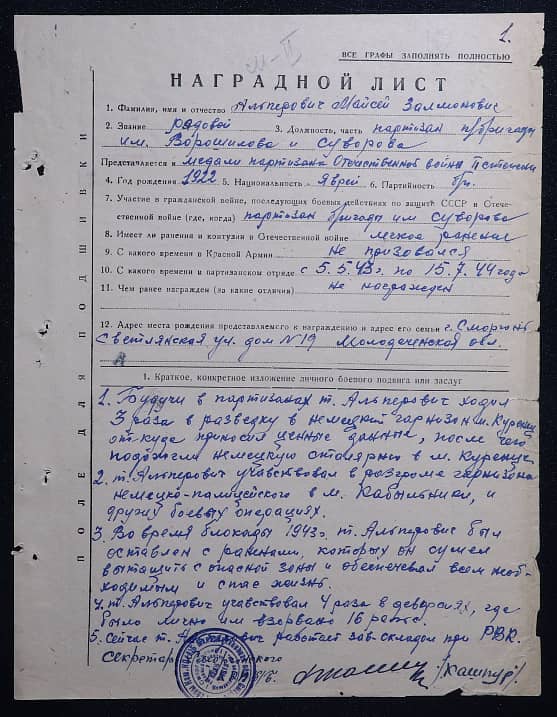 1.
м-II
ВСЕ ГРАФЫ ЗАПОЛНЯТЬ ПОЛНОСТЬЮ
НАГРАДНОЙ ЛИСТ
1. Фамилия, имя и отчество Альперович Майсей Залмонович
2. Звание рядовой 3. Должность, часть партизан п/бригады
им. Ворошилова и Суворова
Представляется к медали партизана Отечественной войны II степени
4. Год рождения 1922 5. Национальность Яврей 6. Партийность бп.
7. Участие в гражданской войне, последующих боевых действиях по защите СССР в Отече-
ственной войне (где, когда) партизан бригады им Суворова
8. Имеет ли ранения и контузии в Отечественной войне легкое ранение
9. С какого времени в Красной Армии не призовался
10. С какого времени в партизанском отряде с 5.5.43г. по 15.7.44 года
11. Чем ранее награжден (за какие отличия) не награжден
12. Адрес места рождения представляемого к награждению и адрес его семьи г. Сморгонь
Светлянская ул. дом N 19 Молодеченская обл.
1. Краткое, конкретное изложение личного боевого подвига или заслуг
1. Будучи в партизанах т. Альперович ходил
3 раза в разведку в немецкий гарнизон м. Куренец
откуда приносил ценные данные, после чего
подожгли немецкую столярню в м. Куренце
2. т. Альперович учавствовал в разгроме гарнизона
немецко-палицейского в м. Кабыльники, и
других боевых операциях.
3. Во время блокады 1943г. т. Альперович был
оставлен с ранеными, которых он сумел
вытащить с опасной зоны и обеспечевал всем необ-
ходимым и спас жизнь.
4. т. Альперович учавствовал 4 раза в деверсиях, где
было лично им взорвано 16 рельс.
5. Сейчас т. Альперович работает зав. складом при РВК.
Секретарь
/Кашпур/.
ПОЛЕ ДЛЯ ПОДШИВКИ